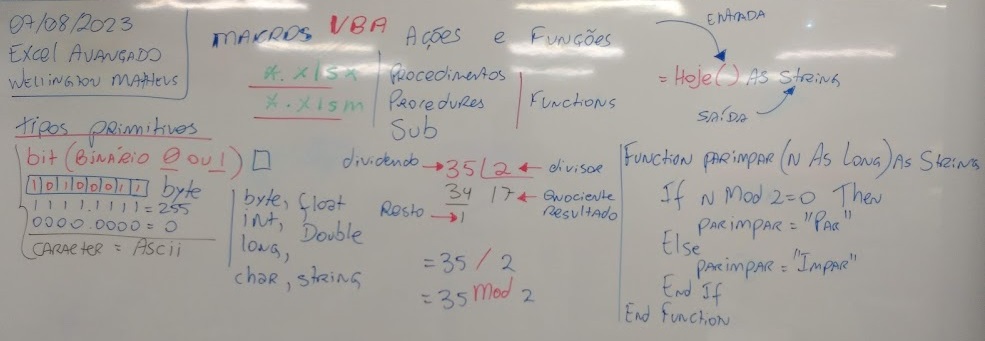 07/08/2023
Excel AVANÇADO
Wellington Matheus
MAKROS VBA Ações e Funções
*.xlsx
*.xlsm
Procedimentos
Procedures
Sub
Functions
ENTRADA
= Hoje() As String
SAÍDA
tipos primitivos
bit (BINÁRIO 0 ou 1)
1 0 1 0 0 0 1 1 byte
1111.1111 = 255
0000.0000 = 0
CARACTER = Ascii
byte, float
int, Double
long,
char, string
dividendo → 35 | 2 ← divisor
34 17 ← Quociente
Resto → 1 Resultado
= 35 / 2
= 35 Mod 2
Function PARIMPAR (N As Long) As String
If N Mod 2 = 0 Then
PARIMPAR = "PAR"
Else
PARIMPAR = "IMPAR"
End If
End Function